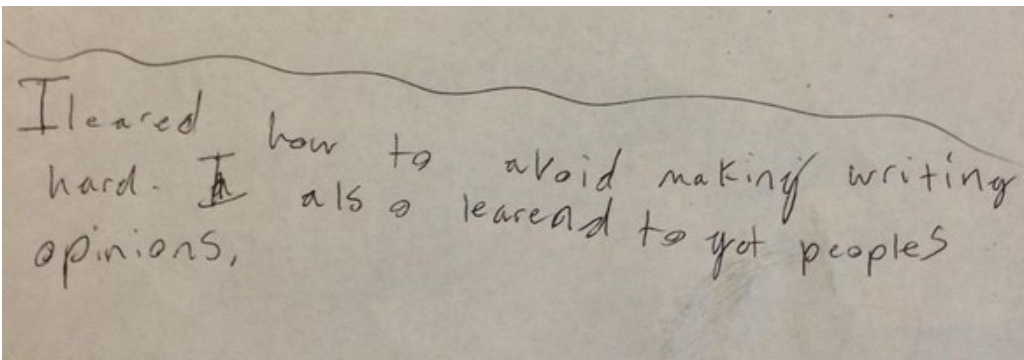 I leared how to avoid making writing
hard. I also learend to get peoples
opinions,